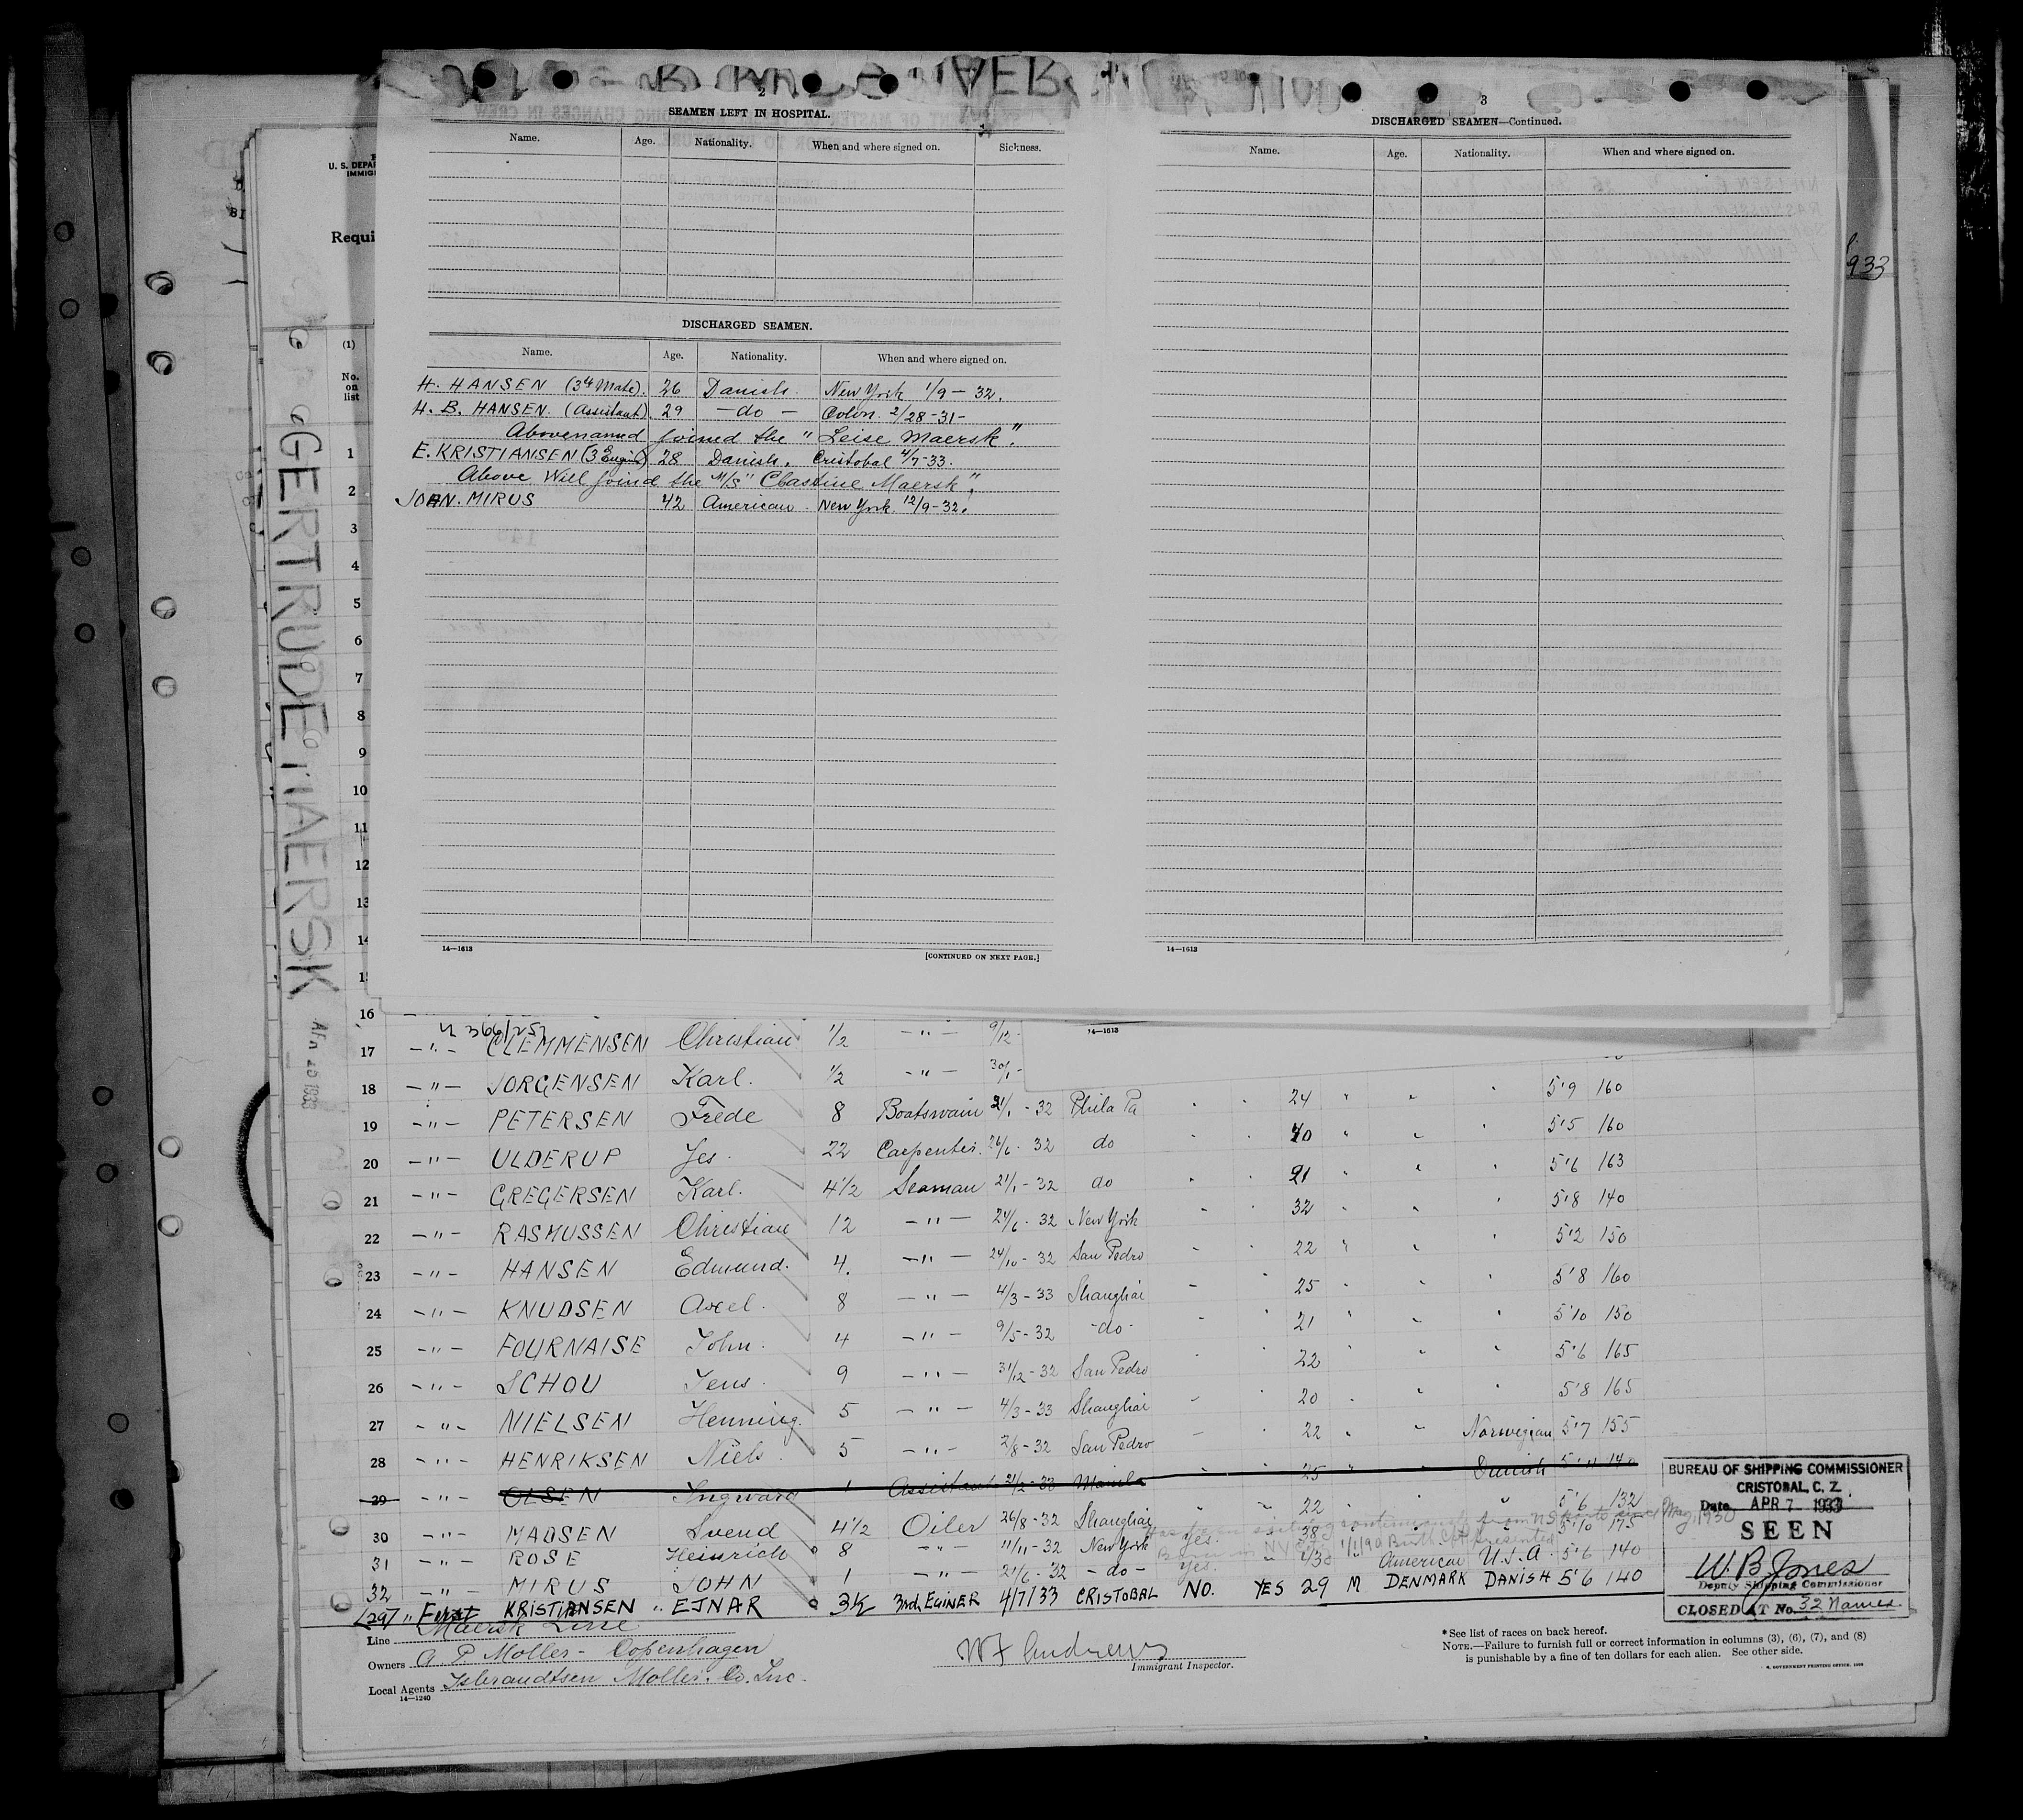 2
SEAMEN LEFT IN HOSPITAL.
Name. Age. Nationality. When and where signed on. Sickness.
DISCHARGED SEAMEN.
Name. Age. Nationality. When and where signed on.
H. HANSEN (3rd Mate). 26 Danish. New York 1/9 - 32.
H. B. HANSEN. (Assistant) 29 - do - Colon. 2/28 - 31 -
Abovenamed joined the "Leise Maersk".
E. KRISTIANSEN (3rd Engin) 28 Danish. Cristobal 4/7-33.
Above Will joind the M/S "Chastine Maersk".
JOHN. MIRUS 42 American. New York. 12/9-32.
14—1613
[CONTINUED ON NEXT PAGE.]
3
DISCHARGED SEAMEN—Continued.
Name. Age. Nationality. When and where signed on.
14—1613
933
U. S. DEPA
IMMIG
Requi
GERTRUDE MAERSK
(1)
No. on list
1
2
3
4
5
6
7
8
9
10
11
12
13
14
16
14—1613
17 - " - CLEMMENSEN Christian 1/2 - " - 9/12-
18 - " - JORGENSEN Karl. 1/2 - " - 30/1-
19 - " - PETERSEN Frede 8 Boatswain 21/1 - 32 Phila Pa 24 5'9 160
20 - " - ULDERUP Jes. 22 Carpenter. 26/6 - 32 do 40 5'5 160
21 - " - GREGERSEN Karl. 4 1/2 Seaman 21/1 - 32 do 21 5'6 163
22 - " - RASMUSSEN Christian 12 - " - 24/6 - 32 New York 32 5'8 140
23 - " - HANSEN Edmund. 4. - " - 24/10 - 32 San Pedro 22 5'2 150
24 - " - KNUDSEN Axel. 8 - " - 4/3 - 33 Shanghai 25 5'8 160
25 - " - FOURNAISE John. 4 - " - 9/5 - 32 - do - 21 5'10 150
26 - " - SCHOU Jens. 9 - " - 31/12 - 32 San Pedro 22 5'6 165
27 - " - NIELSEN Henning. 5 - " - 4/3 - 33 Shanghai 20 5'8 165
28 - " - HENRIKSEN Niels. 5 - " - 2/8 - 32 San Pedro 22 Norwegian 5'7 155
29 - " - OLSEN Ingward 1 Assistant 21/2 - 33 Manila 25 Danish 5'11 140
30 - " - MADSEN Svend 4 1/2 Oiler 26/8 - 32 Shanghai 22 5'6 132
31 - " - ROSE Heinrich 8 - " - 11/11 - 32 New York Yes. 38 5'10 175
32 - " - MIRUS JOHN 1 - " - 21/6 - 32 - do - Yes. American U.S.A. 5'6 140
(29) " First KRISTIANSEN " EJNAR 3K 3rd. EGINER 4/7/33 CRISTOBAL NO. YES 29 M DENMARK DANISH 5'6 140
Line Maersk Line
Owners A. P. Moller - Copenhagen
Local Agents Isbrandtsen Moller. Co. Inc.
14—1240
Immigrant Inspector.
BUREAU OF SHIPPING COMMISSIONER
CRISTOBAL, C. Z.
Date APR 7 1933
SEEN
W. B. Jones
Deputy Shipping Commissioner
CLOSED AT No. 32 Names
*See list of races on back hereof.
NOTE.—Failure to furnish full or correct information in columns (3), (6), (7), and (8)
is punishable by a fine of ten dollars for each alien. See other side.